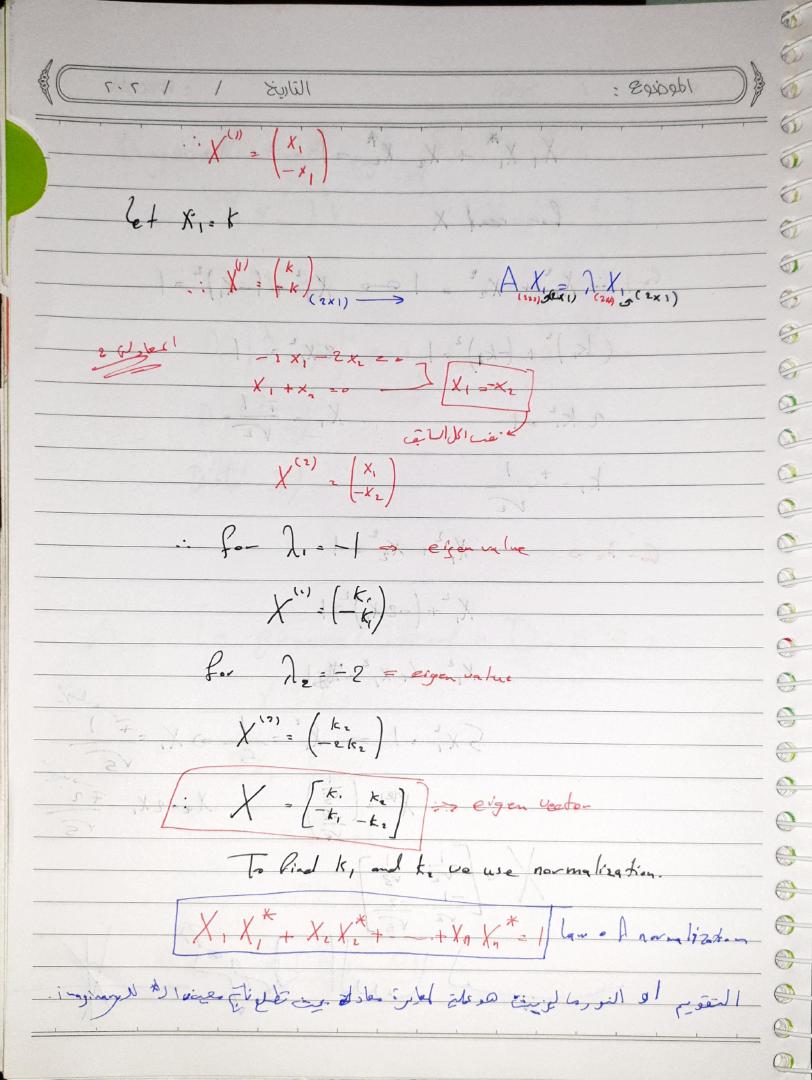 الموضوع : التاريخ / / ٢٠٢
∴ X⁽¹⁾ = (x₁ -x₁)
Let x₁ = k
∴ X⁽¹⁾ = (k -k) (2×1) → A X₁ = λ X₁ (2×1)
-2x₁ - 2x₂ = 0
x₁ + x₂ = 0 x₁ = -x₂
X⁽²⁾ = (x₁ -x₂)
∴ for λ₁ = -1 ⇒ eigen value
X⁽¹⁾ = (k₁ -k₁)
for λ₂ = -2 = eigen value
X⁽²⁾ = (k₂ -2k₂)
∴ X = [k₁ k₂ -k₁ -k₂] ⇒ eigen vector
To find k₁ and k₂ we use normalization.
X₁ X₁* + X₂ X₂* + ---- + Xn Xn* = 1 law of normalization
التقويم او النورماليزيشن هو عملية معادلة تطلع ناتج imaginary.